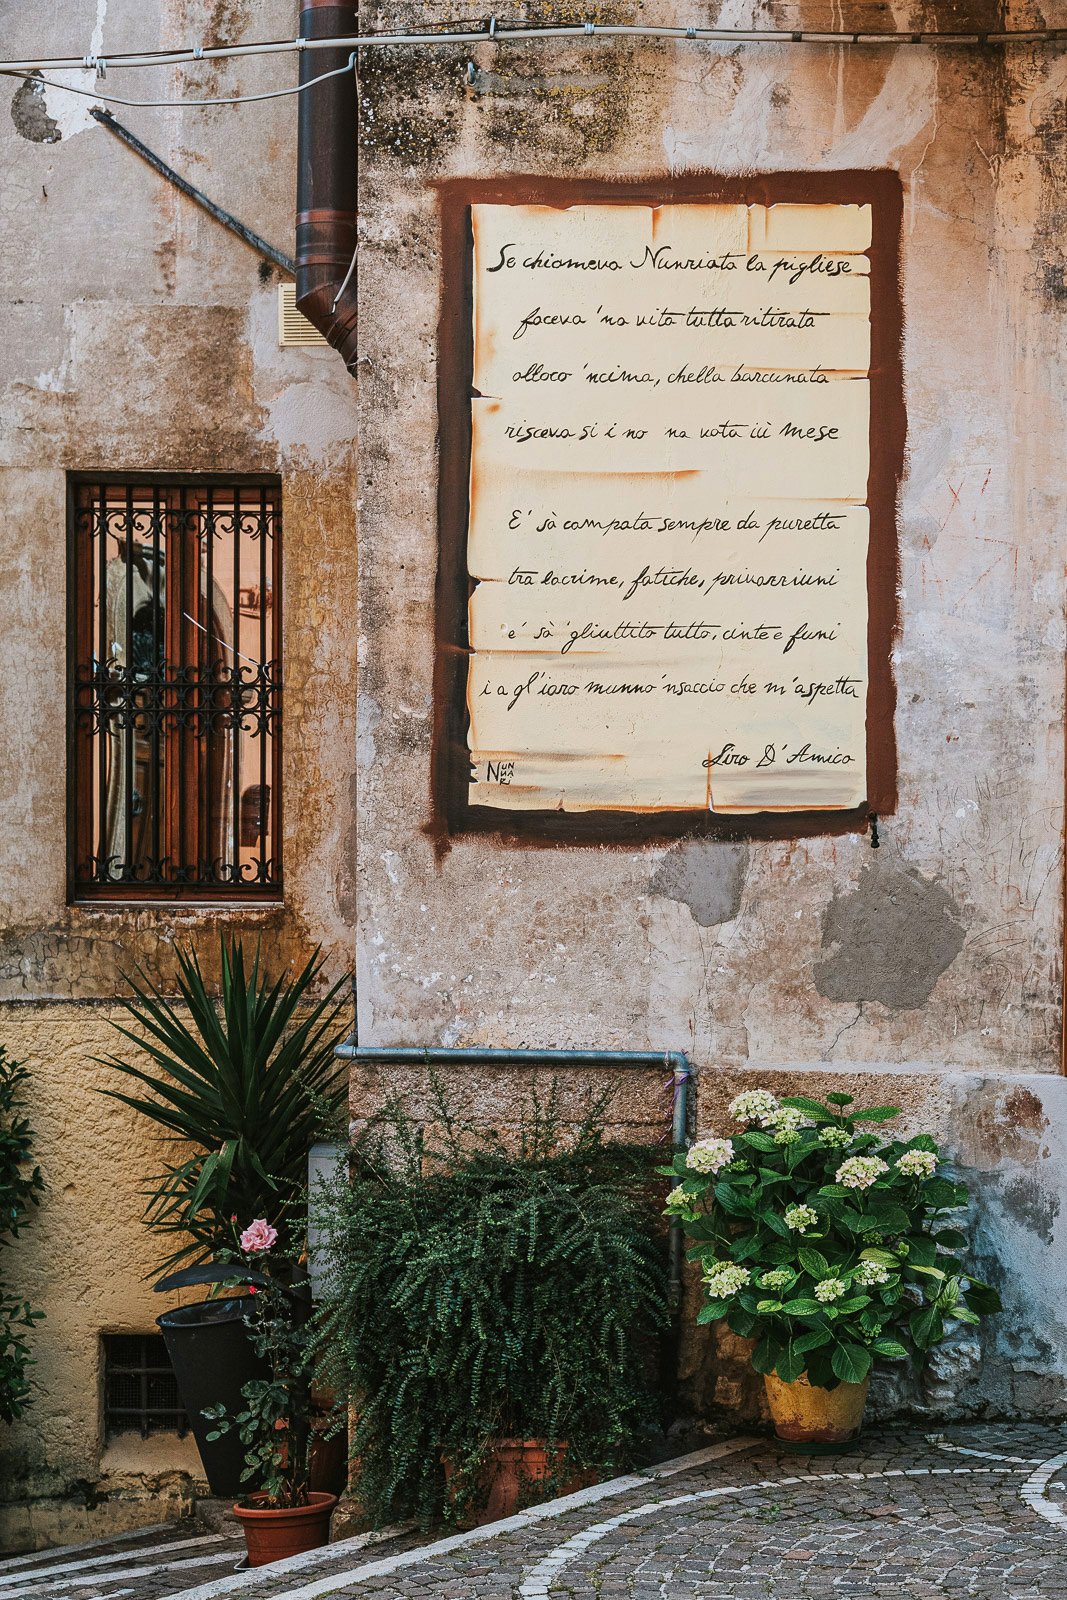 Se chiameva Nunziata la pigliese
faceva 'na vita tutta ritirata
alloco 'ncima, chella barcunata
risceva si i no na vota iù mese
E' sà campata sempre da puretta
tra lacrime, fatiche, privarriuni
e' sà 'gliuttito tutto, cinte e funi
i a gl'iaro munno 'nsaccio che m'aspetta
Siro D'Amico
NUNNARI